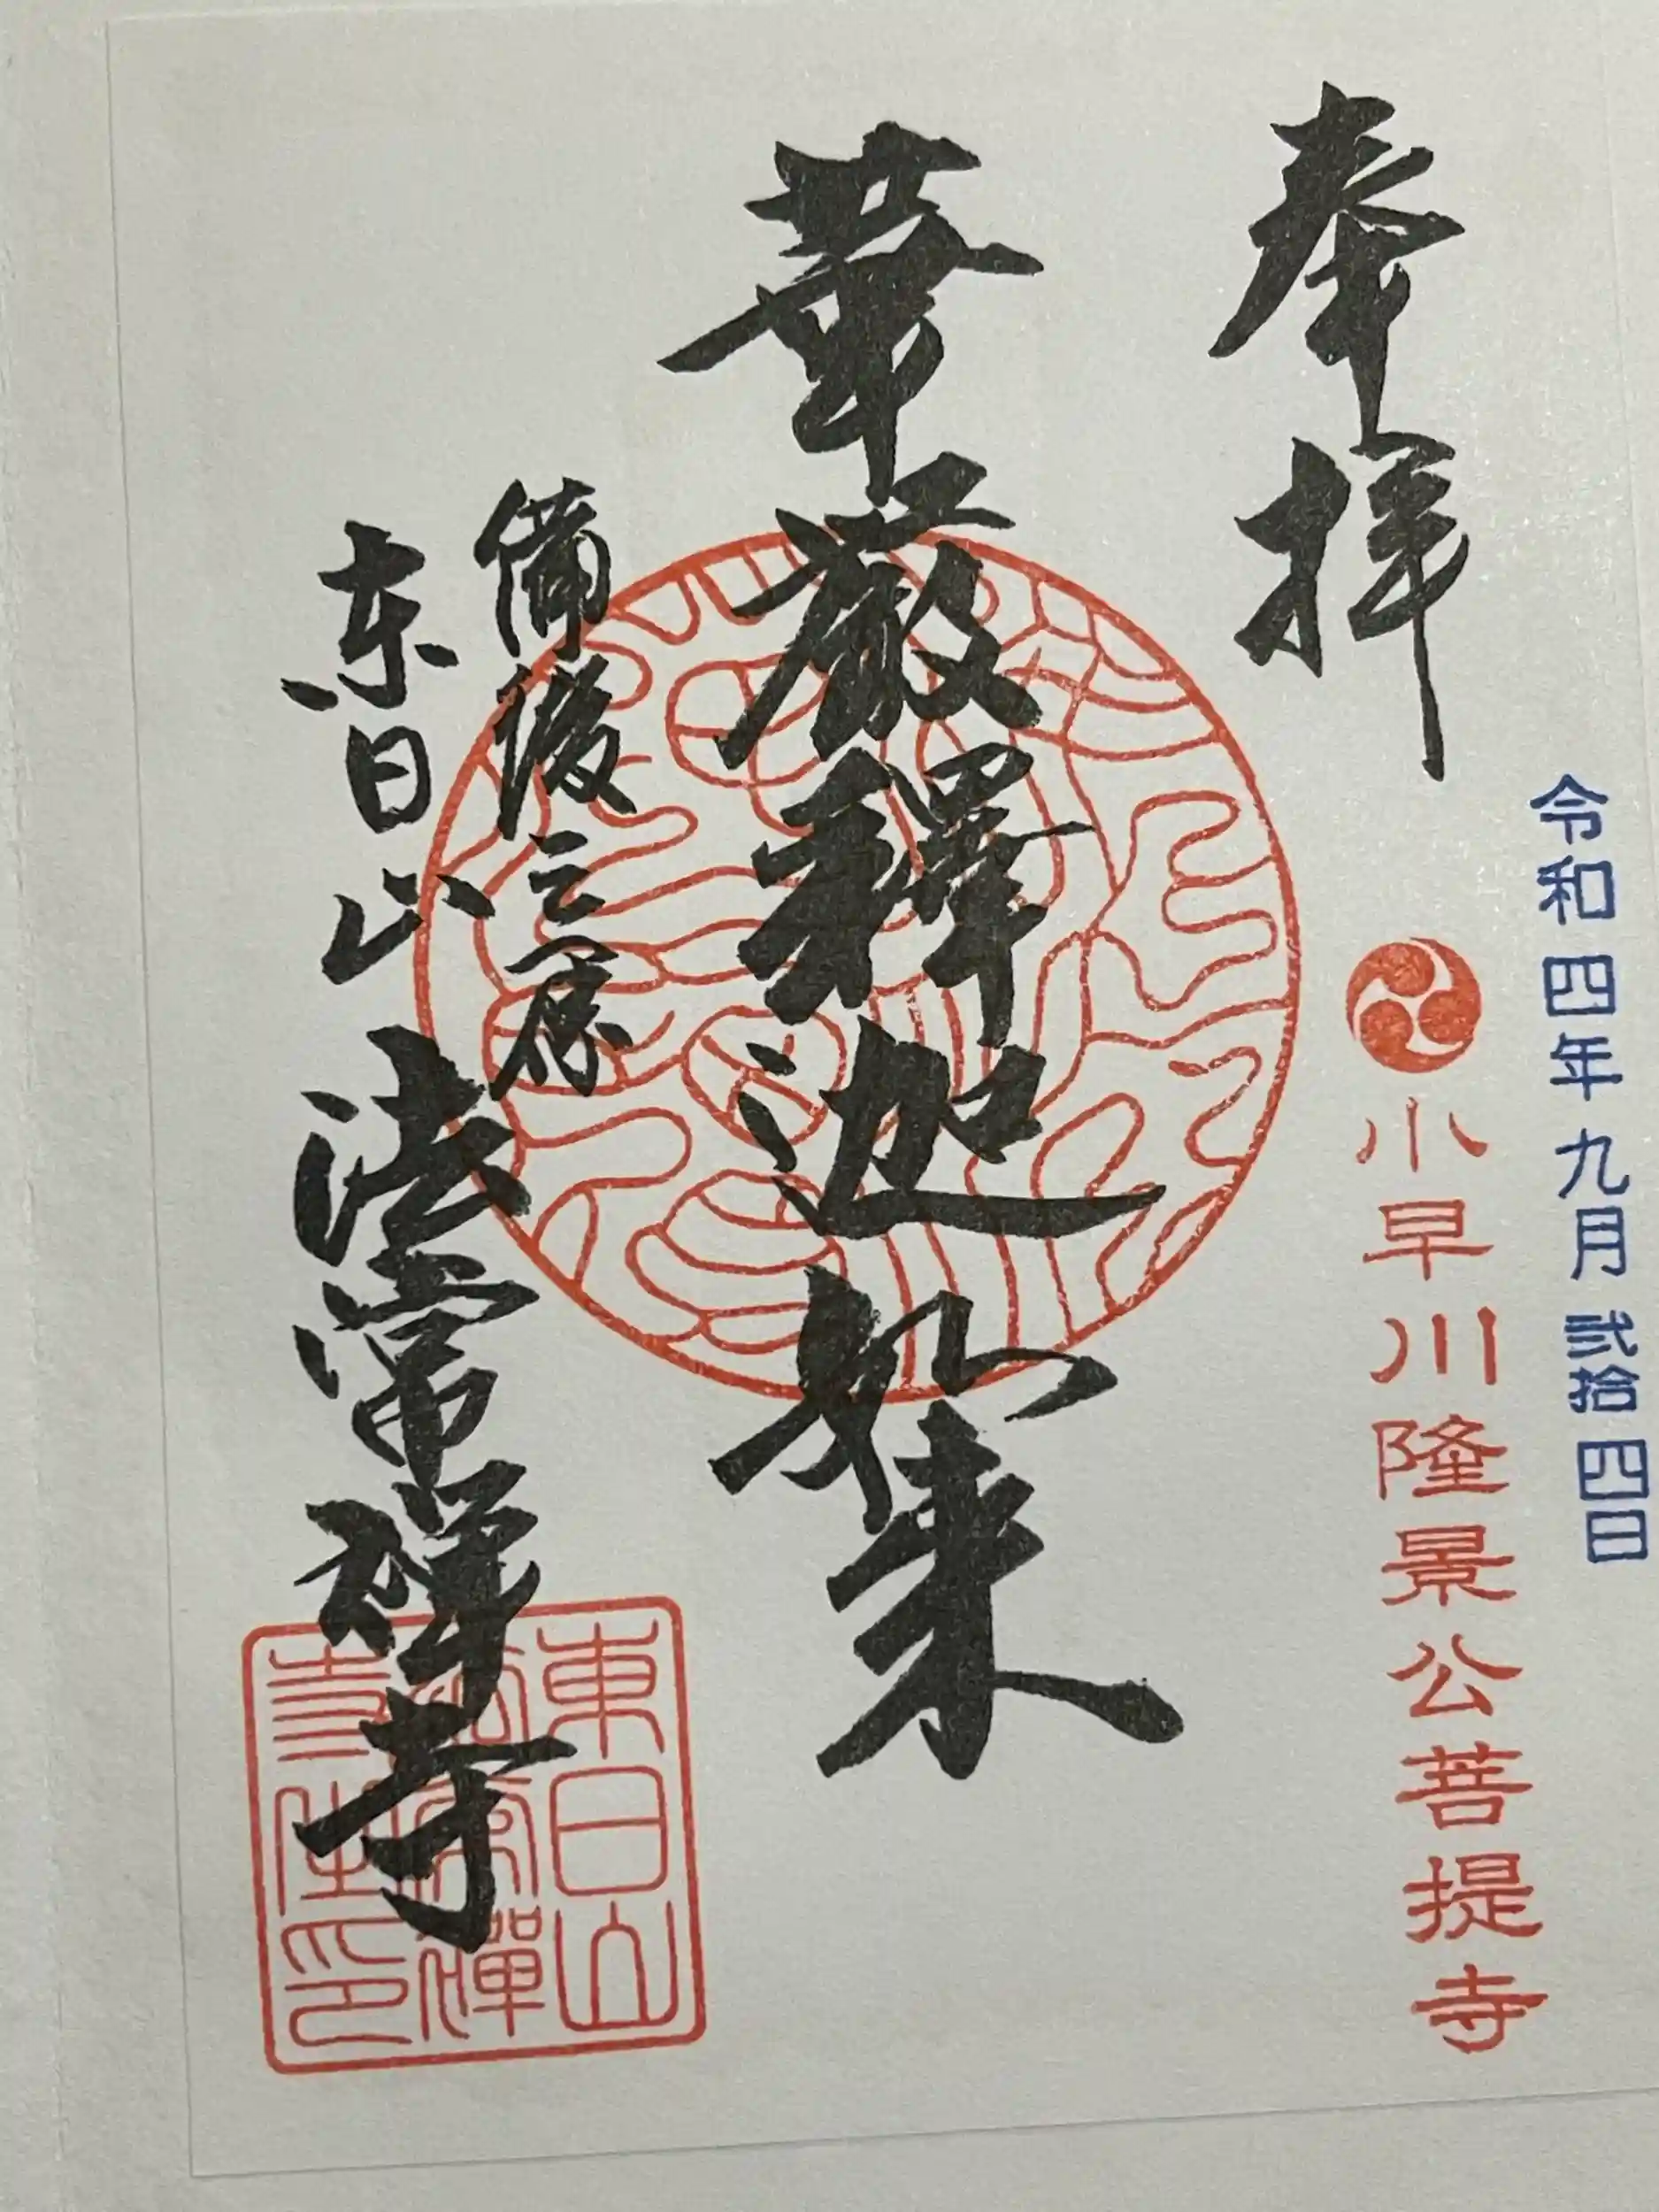 令和四年九月弐拾四日
奉拝
小早川隆景公菩提寺
華厳釋迦如来
備後三原
東日山
法常禅寺
東日山
法常禅
寺住印